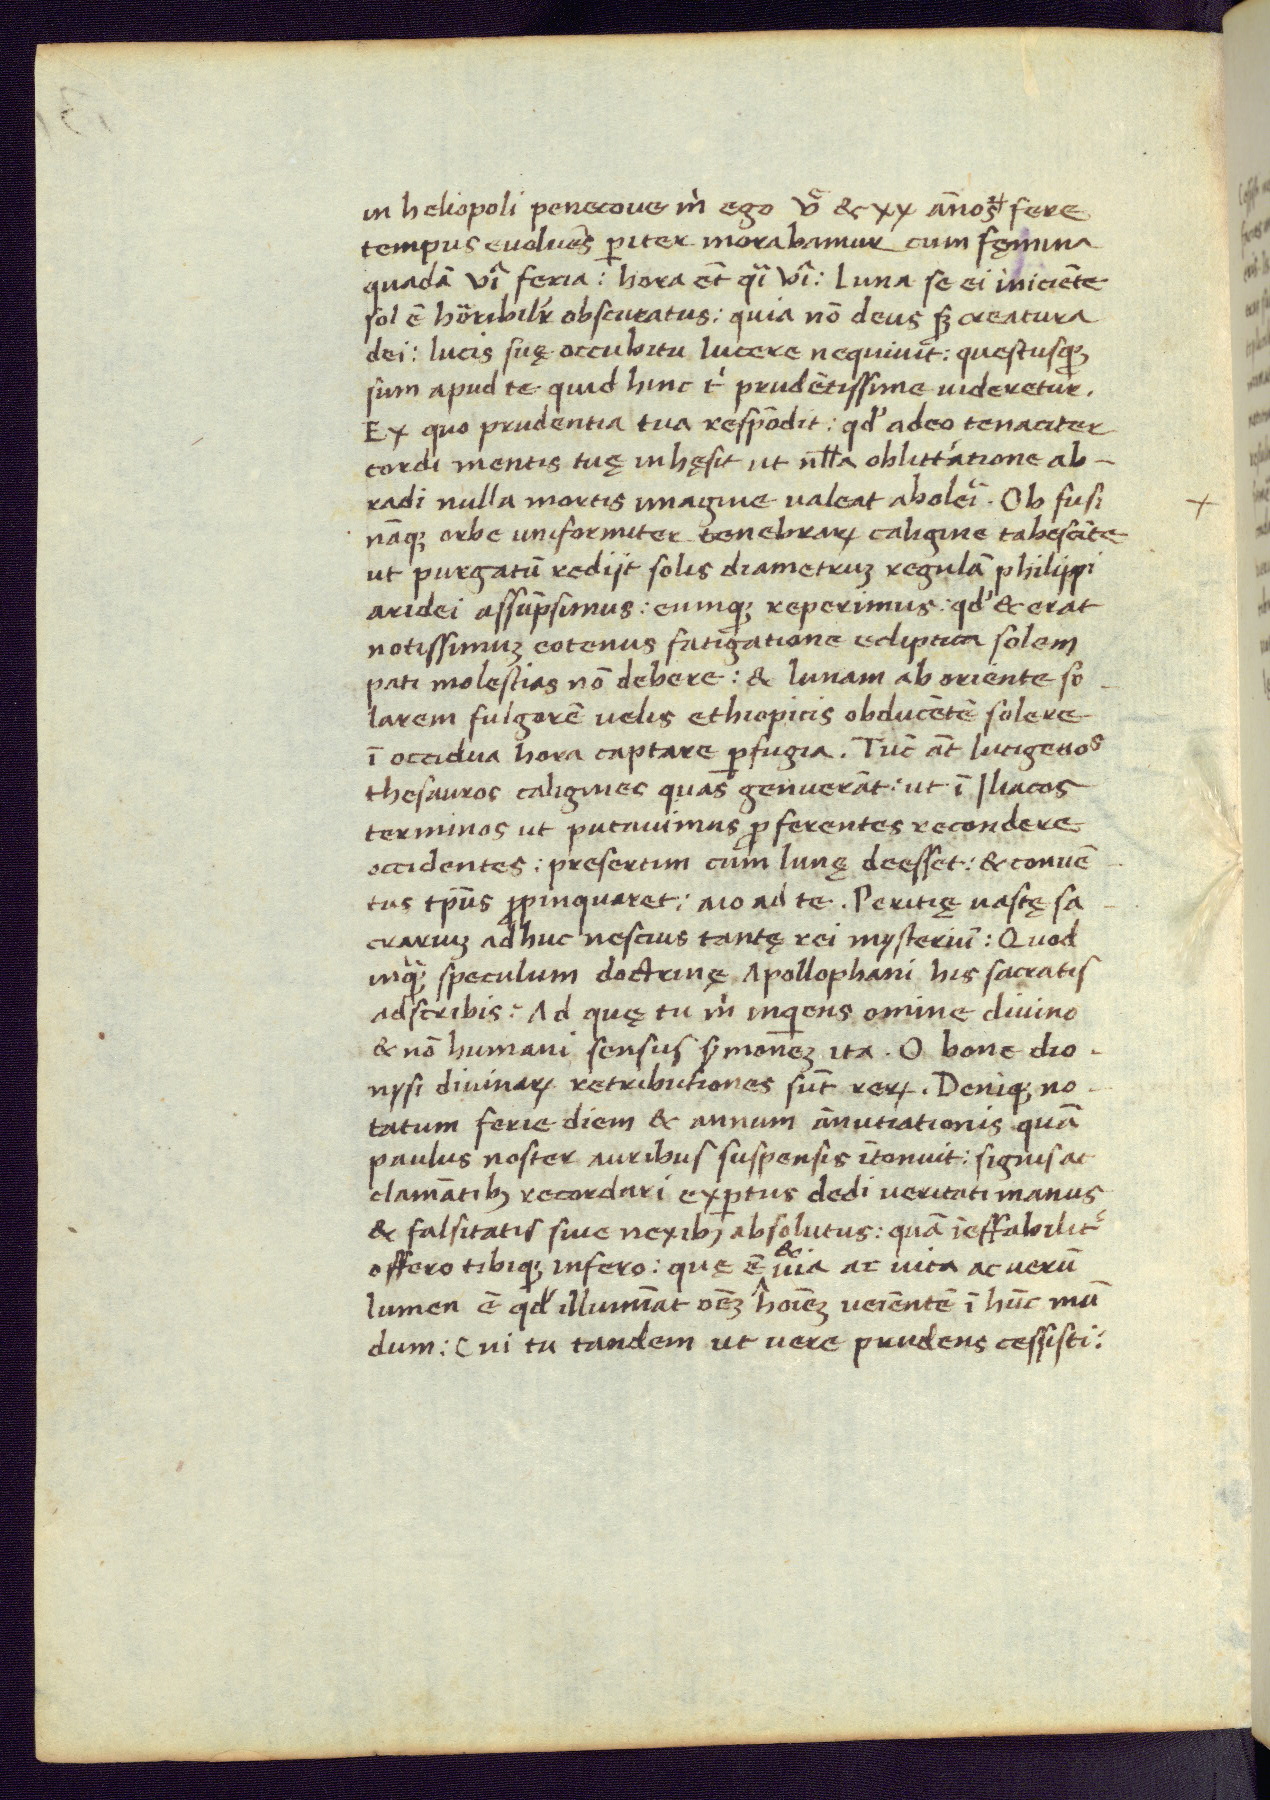 in heliopoli penecove m̄ ego v̄ & xx an̄oꝝ fere
tempus evolvēs ꝑiter morabamur cum fęmina
quadā vi͂ feria: hora ēt q̄i vi͂: Luna se ei iniciēte
sol ē horribilr̄ obscuratus: quia nō deus sꝫ creatura
dei: lucis suę occubitu lucere nequivit: questusqꝫ
sum apud te quid hinc t͛ prudētissime videretur.
Ex quo prudentia tua respōdit: qd̛ adeo tenaciter
cordi mentis tuę inhęsit ut nl̄la oblitt͛atione ab-
radi nulla mortis imagine valeat abolei͂. Ob fusi
nāqꝫ orbe uniformiter tenebraꝝ caligine tabescēte
ut purgatū redijt solis diametruꝫ regulā philippi
aridei assūpsimus: eumqꝫ reperimus: qd̛ & erat
notissimuꝫ eotenus fatigatione ecliptica solem
pati molestias nō debere: & lunam ab oriente so-
larem fulgorē velis ethiopicis obducētē solere
ī occidua hora captare ꝑfugia. Tūc āt lucigenos
thesauros caligines quas genuerāt: ut ī Iliacos
terminos ut putavimus ꝓferentes recondere
occidentes: presertim cum lunę deesset: & convē-
tus tp̄us ꝓpinquaret: aio ad te. Peritię vastę sa-
crariuꝫ adhuc nescius tantę rei mysteriū: Quod
inqꝫ speculum doctrinę Apollophani his sacratis
adscribis: Ad quę tu m̄ inqens omine divino
& nō humani sensus s͛moneꝫ ita. O bone dio-
nysi divinaꝝ retributiones sūt reꝝ. Deniqꝫ no-
tatum ferie diem & annum ānutiationis quā
paulus noster auribus suspensis ītonuit: signis ac
clamātibꝫ recordari exꝑtus dedi veritati manus
& falsitatis sive nexibꝫ absolutus: quā īeffabilit͛
offero tibiqꝫ infero: quę ē & via ac vita ac verū
lumen ē qd̛ illumīat oēꝫ hoīeꝫ veiēntē ī hūc mū
dum: Cui tu tandem ut vere prudens cessisti: